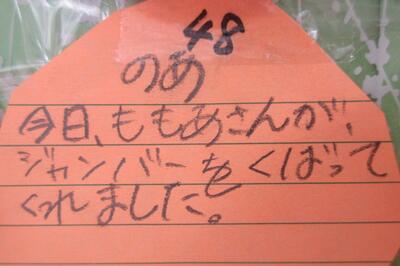 48
のあ
今日、ももあさんが、
ジャンバーをくばって
くれました。